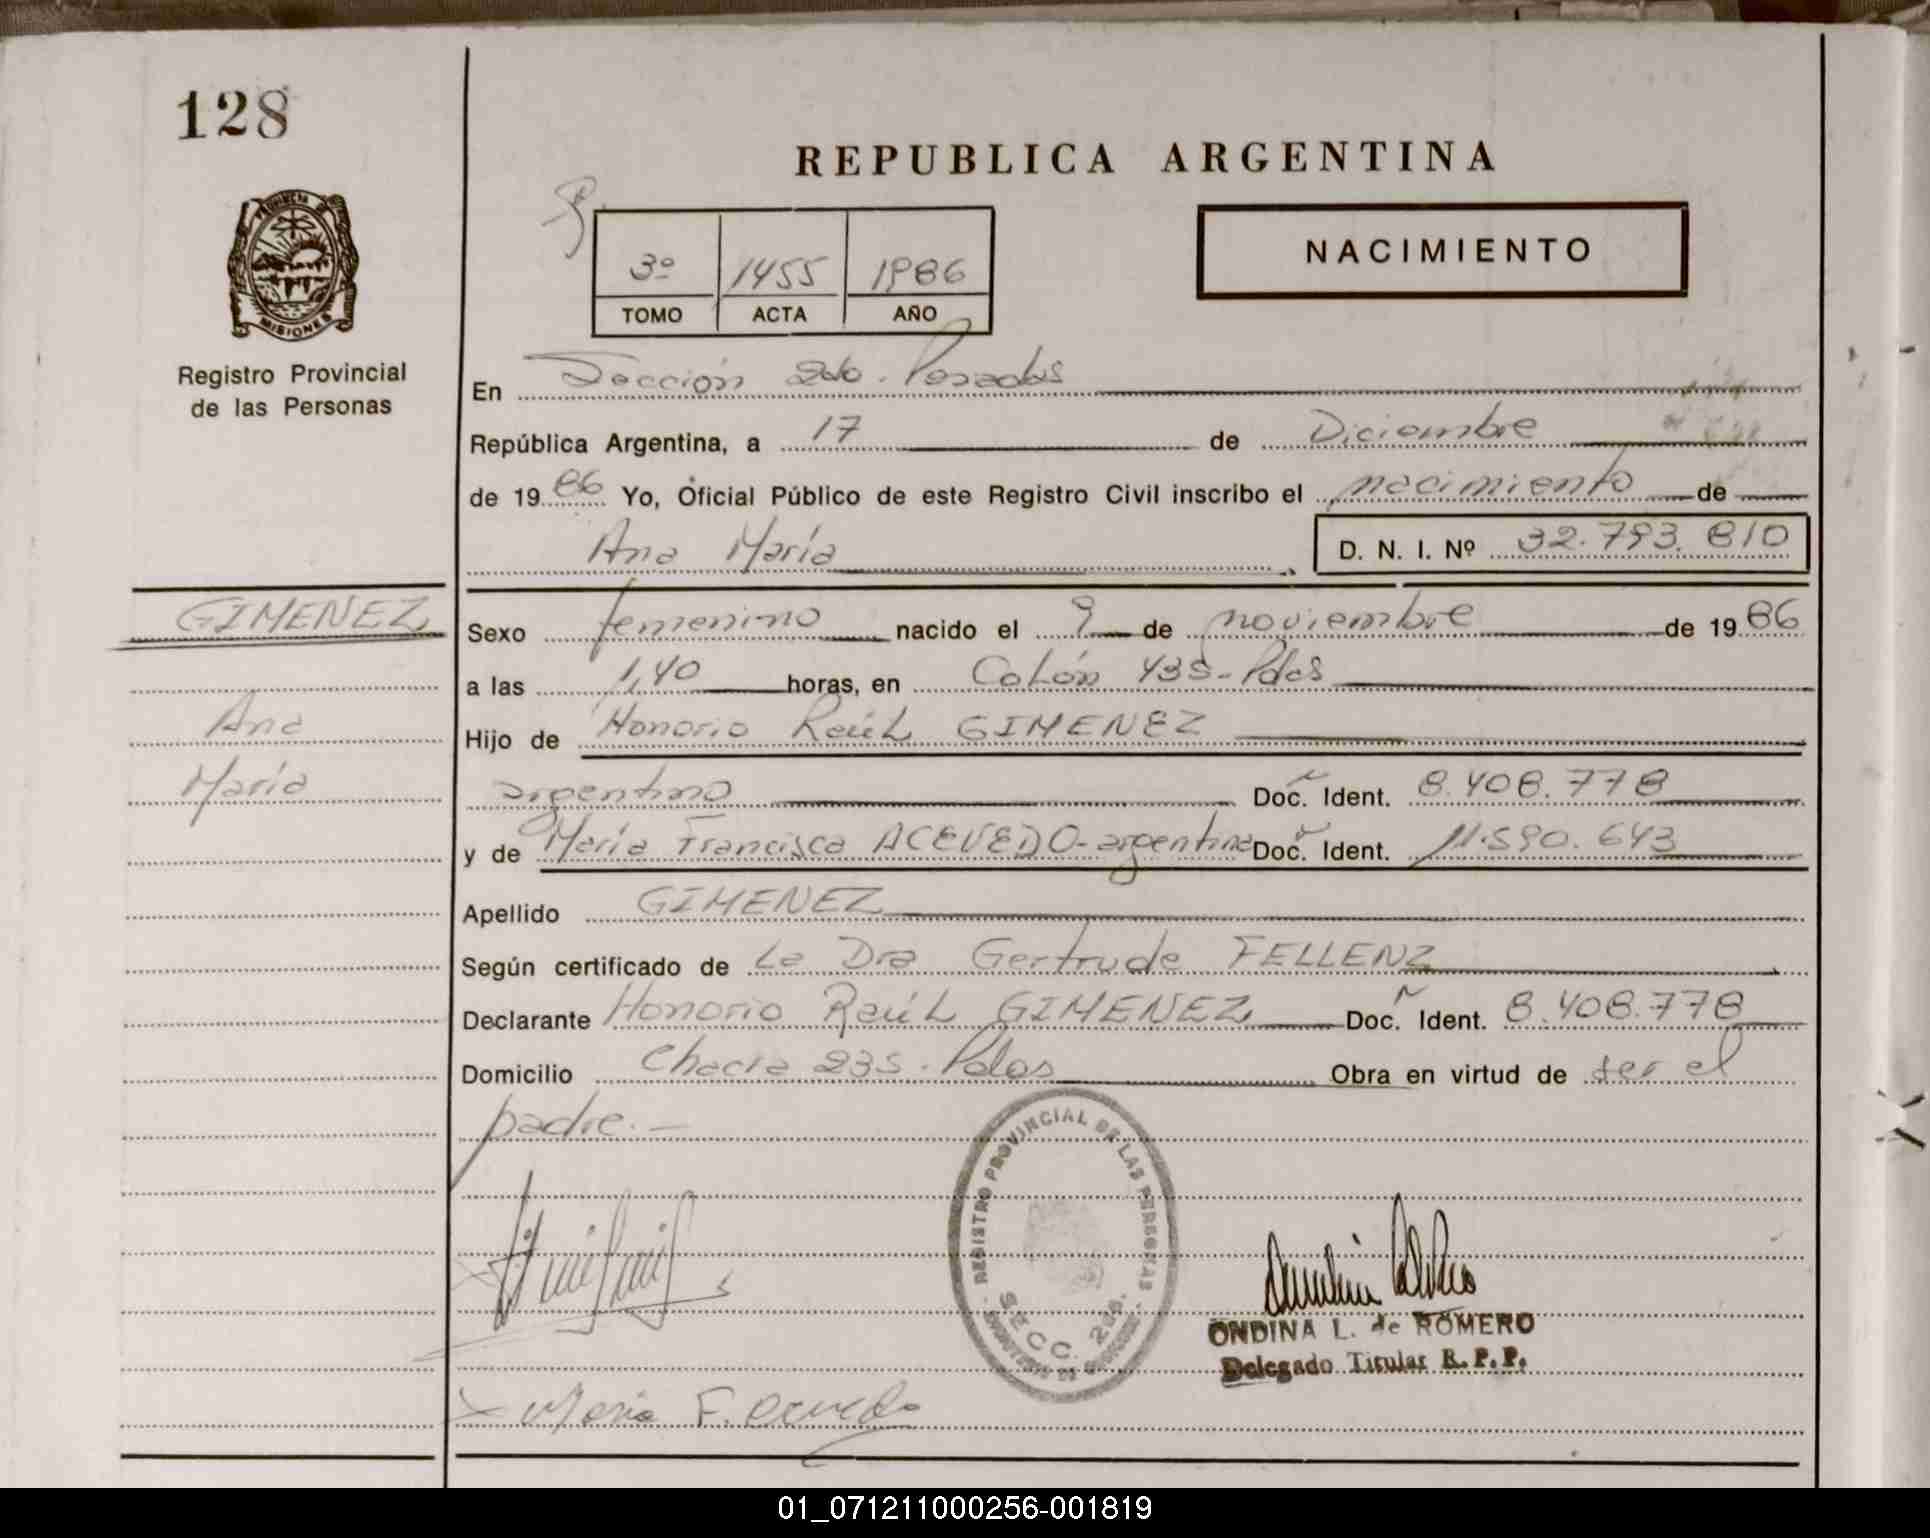 128
REPUBLICA ARGENTINA
PROVINCIA DE
MISIONES
Registro Provincial
de las Personas
NACIMIENTO
3º 1455 1986
TOMO ACTA AÑO
En Sección 2da. Posadas
República Argentina, a 17 de Diciembre
de 1986 Yo, Oficial Público de este Registro Civil inscribo el nacimiento de
Ana María D. N. I. Nº 32.793.810
GIMENEZ
Ana
María
Sexo femenino nacido el 9 de noviembre de 1986
a las 1,40 horas, en Colón 435-Pdas
Hijo de Honorio Raúl GIMENEZ
argentino Doc. Ident. 8.408.778
y de María Francisca ACEVEDO-argentina Doc. Ident. 11.590.643
Apellido GIMENEZ
Según certificado de La Dra Gertrude FELLENZ
Declarante Honorio Raúl GIMENEZ Doc. Ident. 8.408.778
Domicilio Chacra 235-Pdas Obra en virtud de ser el
padre.-
REGISTRO PROVINCIAL DE LAS PERSONAS
SECC. 2da.
ONDINA L. de ROMERO
Delegado Titular R.P.P.
x María F. Acevedo
01_071211000256-001819